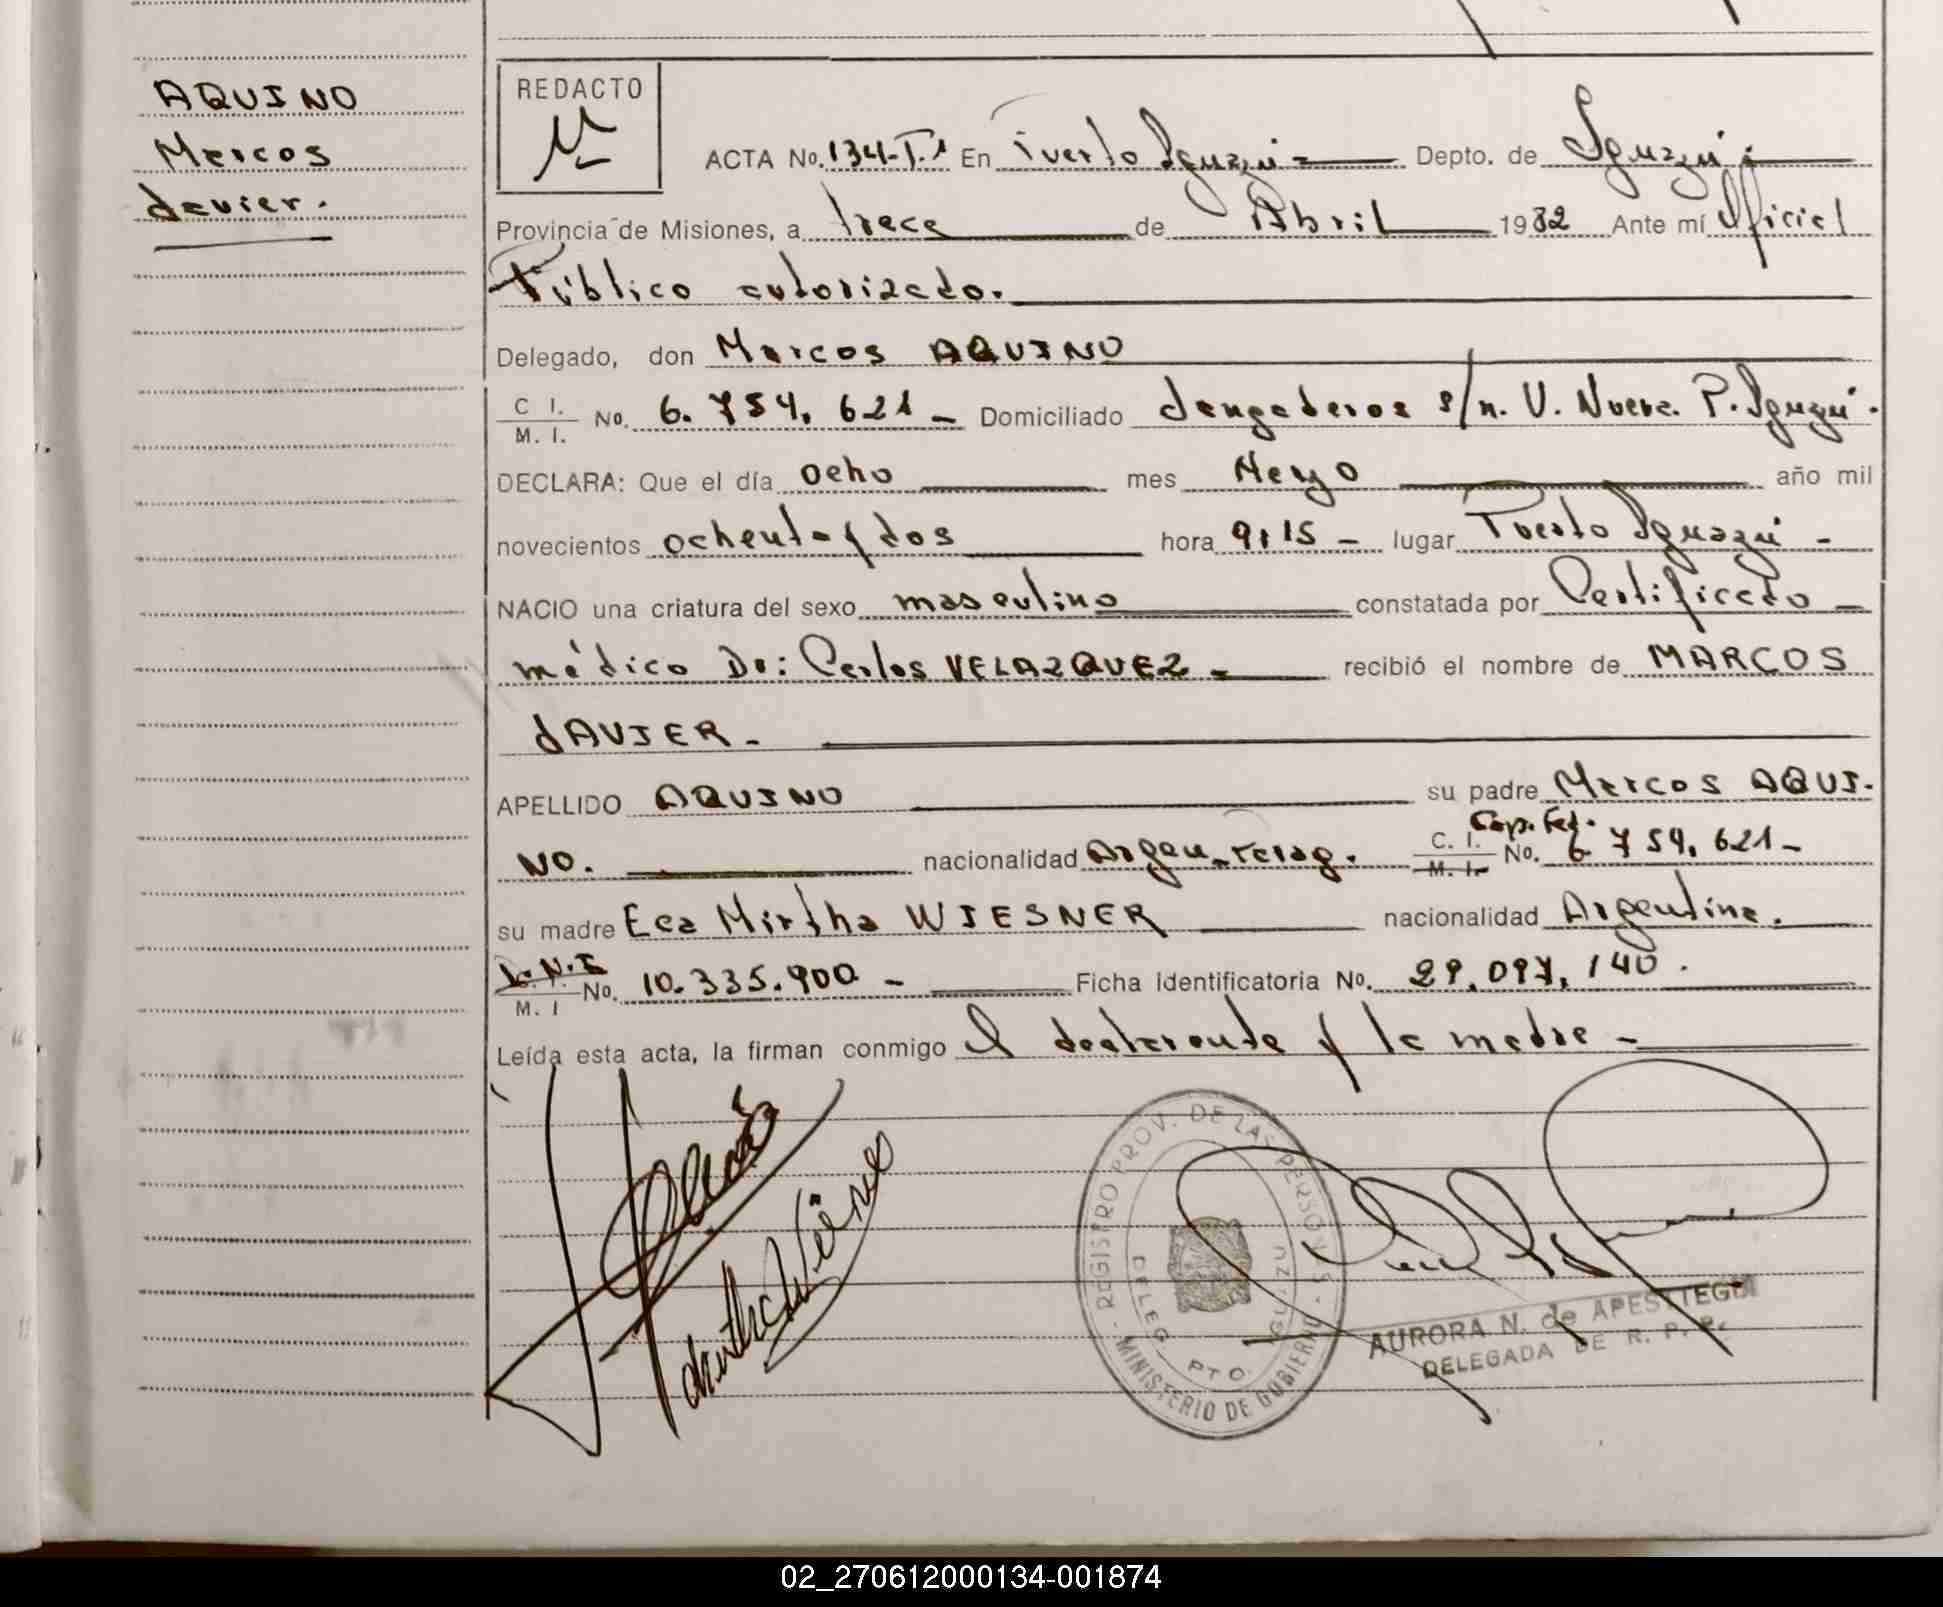 AQUINO
Marcos
Javier.
REDACTO
ACTA No. 134-T.1 En Puerto Iguazú Depto. de Iguazú
Provincia de Misiones, a trece de Abril 1982 Ante mí Oficial
Público autorizado.
Delegado, don Marcos AQUINO
C I. M. I. No. 6.754.621 - Domiciliado Jangaderos s/n. V. Nueva. P. Iguazú.
DECLARA: Que el día ocho mes Mayo año mil
novecientos ochenta y dos hora 9,15 - lugar Puerto Iguazú -
NACIO una criatura del sexo masculino constatada por Certificado -
médico Dr: Carlos VELAZQUEZ - recibió el nombre de MARCOS
JAVIER -
APELLIDO AQUINO su padre Marcos AQUI-
NO. nacionalidad Argen. C. I. M. I. Cap. Fed. No. 6 754.621 -
su madre Eca Mirtha WIESNER nacionalidad Argentina.
D.N.I M. I No. 10.335.900 - Ficha identificatoria No. 29.097.140.
Leída esta acta, la firman conmigo el declarante y la madre -
REGISTRO PROV. DE LAS PERSONAS - MINISTERIO DE GOBIERNO
DELEG. PTO. IGUAZU
AURORA N. de APESTEGUI
DELEGADA DE R. P. P.
02_270612000134-001874